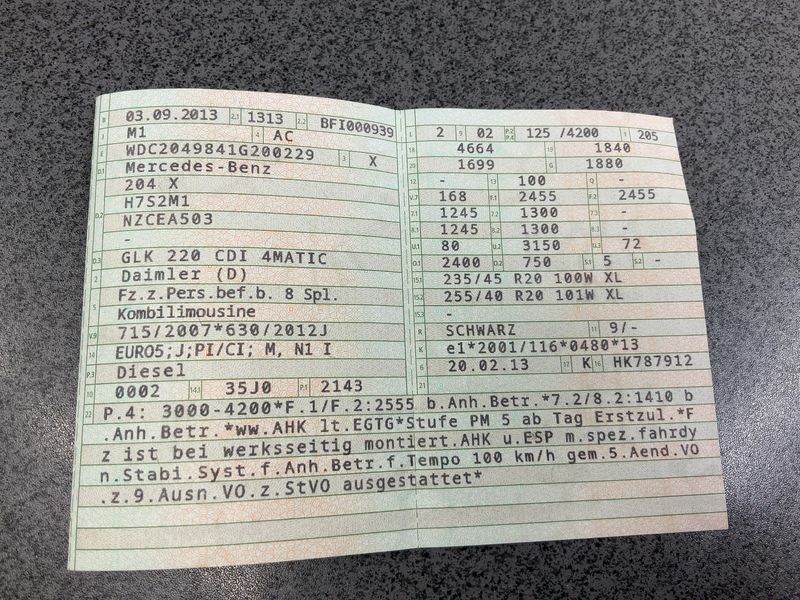 B 03.09.2013 2.1 1313 2.2 BFI000939
J M1 4 AC
E WDC2049841G200229 3 X
D.1 Mercedes-Benz
204 X
D.2 H7S2M1
NZCEA503
-
D.3 GLK 220 CDI 4MATIC
2 Daimler (D)
5 Fz.z.Pers.bef.b. 8 Spl.
Kombilimousine
V.9 715/2007*630/2012J
14 EURO5;J;PI/CI; M, N1 I
P.3 Diesel
10 0002 14.1 35J0 P.1 2143
L 2 9 02 P.2 P.4 125 /4200 T 205
18 4664 19 1840
20 1699 1880
12 - 13 100 Q -
V.7 168 F.1 2455 F.2 2455
7.1 1245 7.2 1300 7.3 -
8.1 1245 8.2 1300 8.3 -
U.1 80 U.2 3150 U.3 72
O.1 2400 O.2 750 S.1 5 S.2 -
15.1 235/45 R20 100W XL
15.2 255/40 R20 101W XL
15.3 -
R SCHWARZ 11 9/-
K e1*2001/116*0480*13
6 20.02.13 17 K 16 HK787912
21
22 P.4: 3000-4200*F.1/F.2:2555 b.Anh.Betr.*7.2/8.2:1410 b
.Anh.Betr.*ww.AHK lt.EGTG*Stufe PM 5 ab Tag Erstzul.*F
z ist bei werksseitig montiert.AHK u.ESP m.spez.fahrdy
n.Stabi.Syst.f.Anh.Betr.f.Tempo 100 km/h gem.5.Aend.VO
.z.9.Ausn.VO.z.StVO ausgestattet*